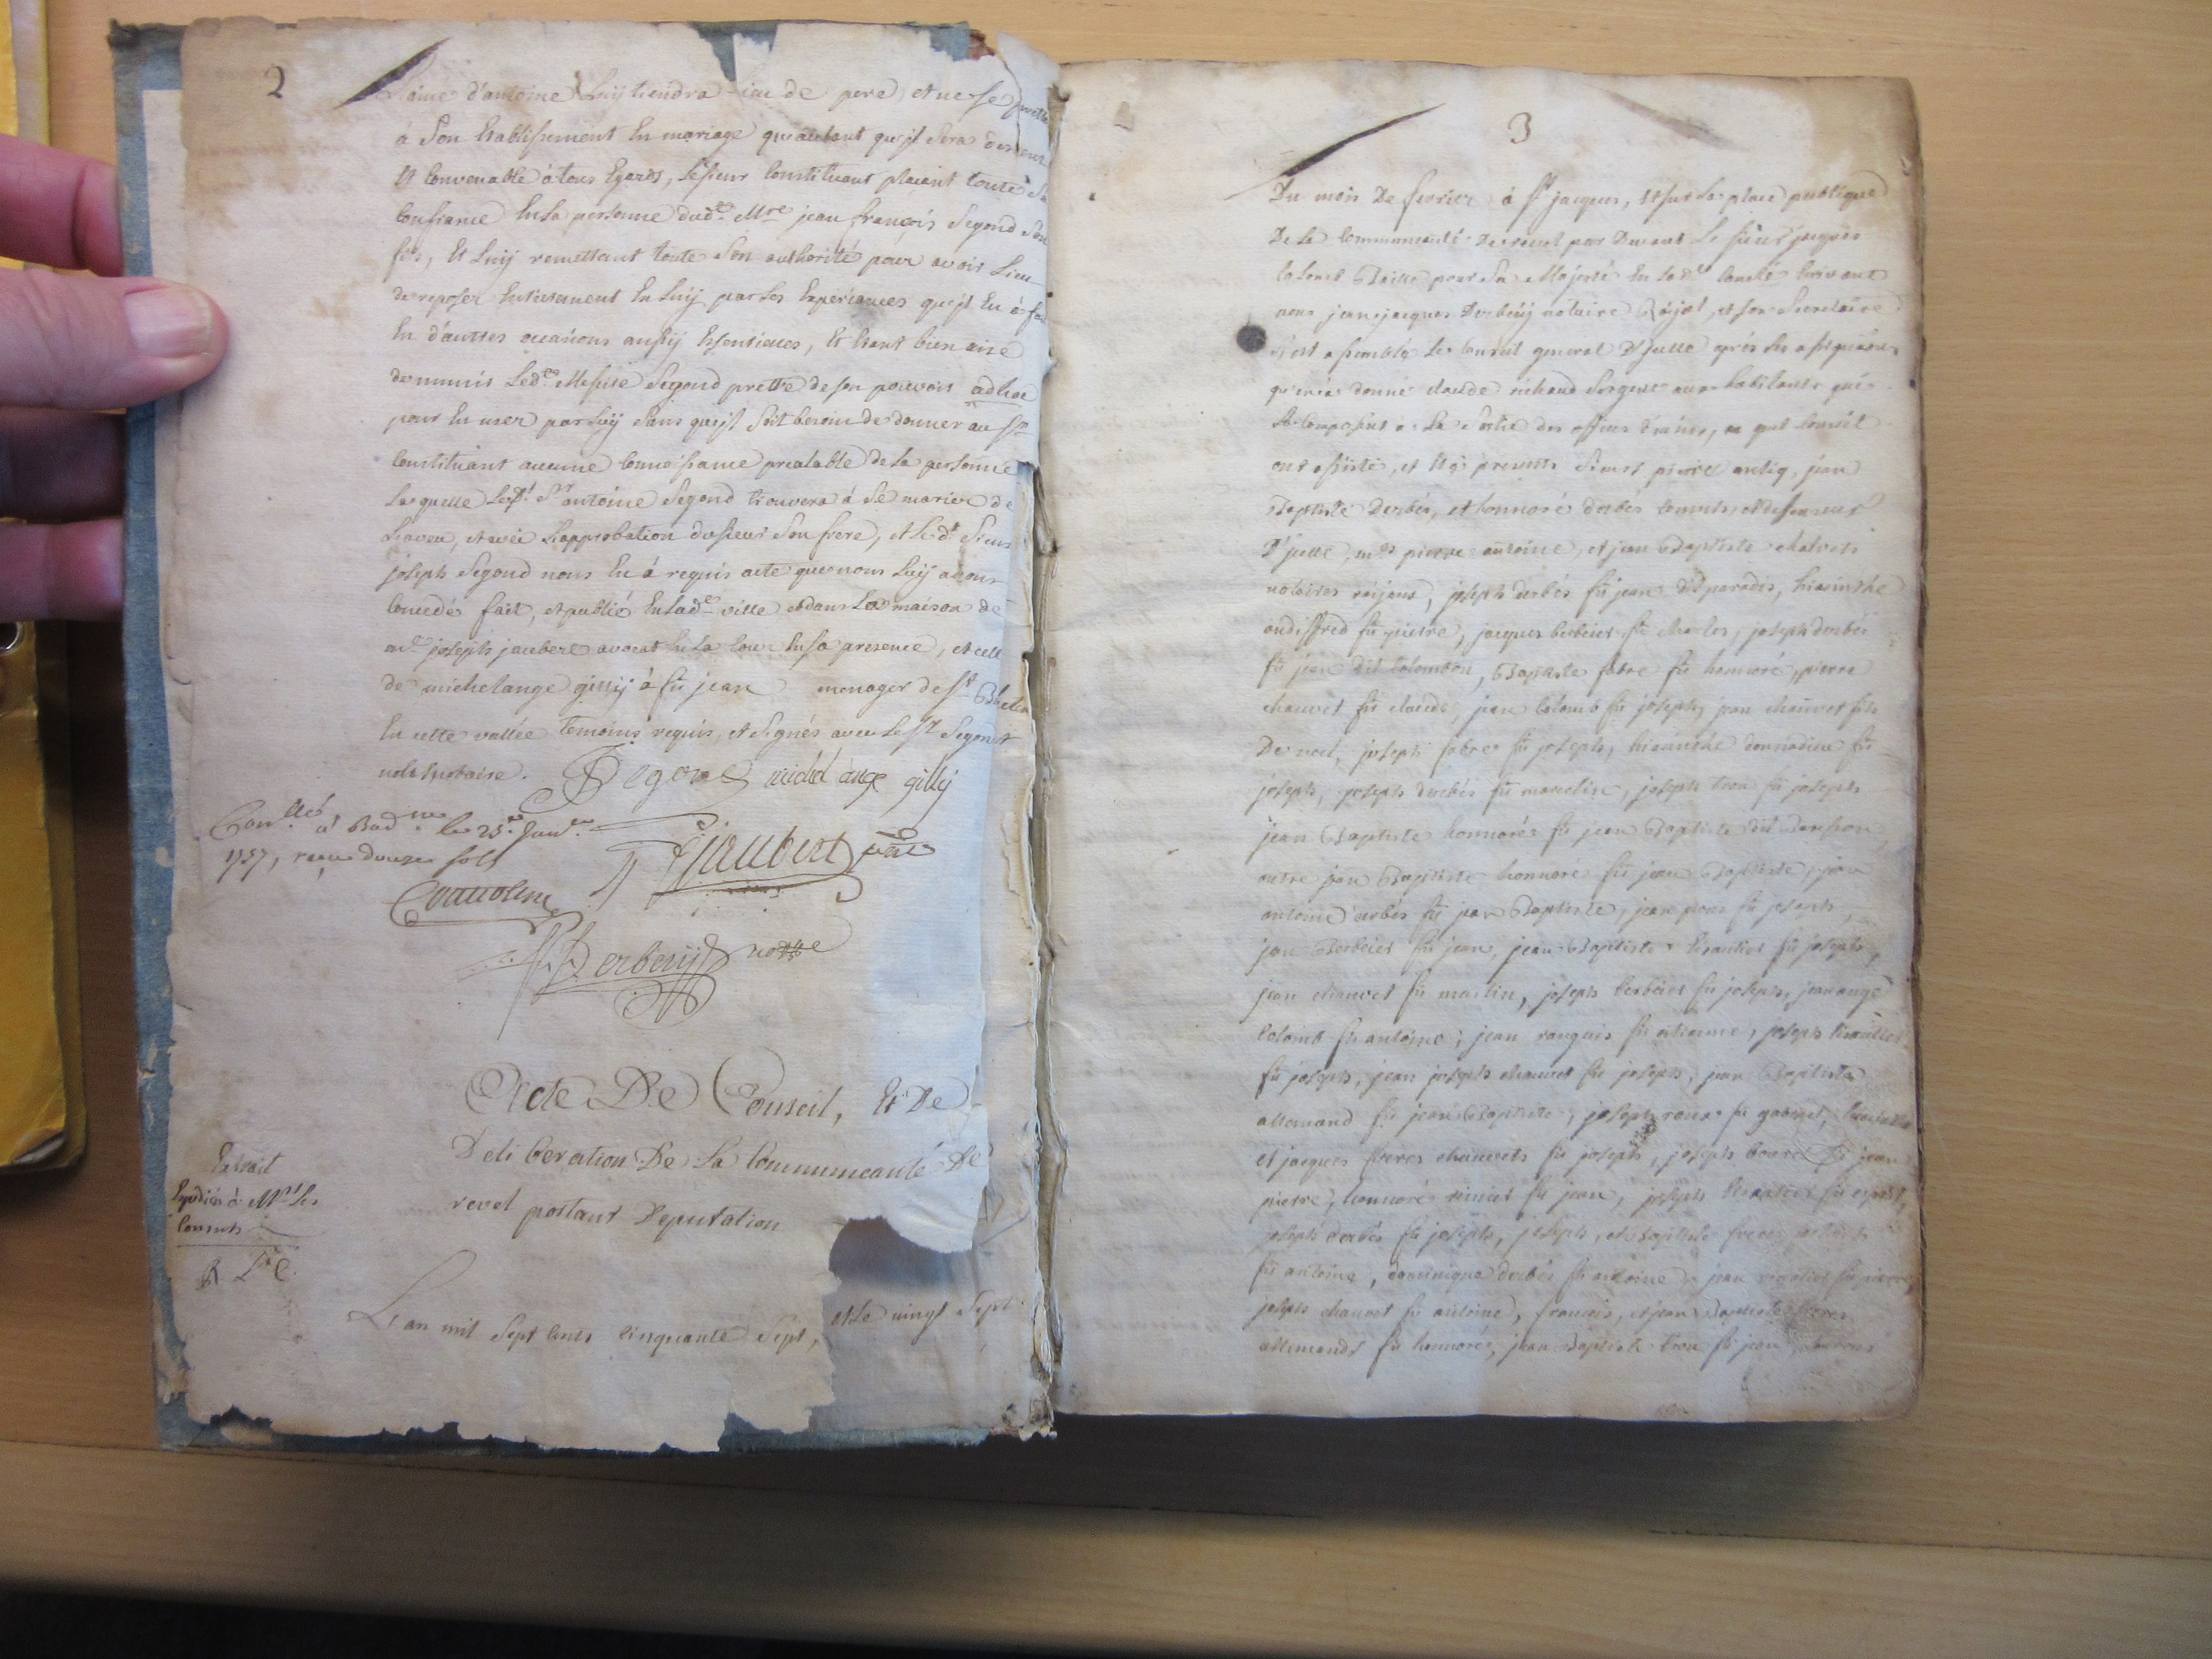 2
d'antoine Luy tiendra lieu de pere, et ne se
à Son Etablissement En mariage qu'autant qu'jl Sera
Et Convenable à tous Egards, Le Sieur Constituant plaçant toute Sa
Confiance En La personne dud.e M.re jean françois Segond Son
fils, Et Luij remettant toute Son authorité pour avoir Lieu
de reposer Entierement En Luij par Les Experiances qu'jl En à fait
En d'autres occasions aussij Essentielles, Et Etant bien aise
de munir Led.e Messire Segond prettre de son pouvoir adhoc
pour En user par Luij Sans qu'jl Soit besoin de donner au Sr
Constituant aucune Connoissance prealable de La personne
Laquelle Led.t Sr antoine Segond trouvera à Se marier de
L'aveu, et avec L'approbation du Sieur Son frere, et Le d.t Sieur
joseph Segond nous En à requis acte que nous Luij avons
Concedés fait, et publié En Lad.e ville et dans La maison de
m.e joseph jaubert avocat En La Cour En sa presence, et celle
de michelange gillij à fû jean menager de St
En cette vallée temoins requis, et Signés avec Le Sr Segond
notaire. Segond michel ange gillij
Con.llé à Bad.ne le 25.e Janv.er
1757, reçu douze sols
Jaubert
Derbezij no.re
Acte De Conseil, Et De
Deliberation De La Communeauté De
revel portant Deputation
Extrait
Expedié à M.rs Les
Consuls
L'an mil Sept Cents Cinquante Sept, et Le vingt Sept
3
Du mois De fevrier à St jacques, Et sur La place publique
De La Communeauté De revel par Devant Le Sieur jacques
Colomb Baille pour Sa Majesté En La d.te Com.té Ecrivant
nous jean jacques Derbezij notaire Roijal, et son Secretaire
s'est assemblé Le Conseil general D'jcelle après Les assignations
donné claude richaud Sergent aux habitants qui
Le Composent à La Sortie des offices Divins, au quel Conseil
ont assisté, et Etés presents Sieurs pierre jean
Baptiste Derbés, et honnoré derbés Consuls, et deffenseurs
D'jcelle, m.es pierre antoine, et jean Baptiste
notaires roijaux, joseph derbés fû jean dit paradis, hiacinthe
audiffred fû pierre, jacques berbeier fû charles, joseph derbés
fû jean dit Colombon, Baptiste fabre fû honnoré, pierre
chauvet fû claude, jean Colomb fû joseph, jean chauvet fils
De noel, joseph fabre fû joseph, hiacinthe donnadieu fû
joseph, joseph derbés fû marcelin, joseph tron fû joseph
jean Baptiste honnoré fû jean Baptiste dit
autre jean Baptiste honnoré fû jean Baptiste, jean
antoine derbés fû jean Baptiste, jean pons fû joseph,
jean Berbeier fû jean, jean Baptiste fû joseph,
jean chauvet fû martin, joseph berbeier fû joseph, jean ange
Colomb fû antoine, jean fû etienne, joseph
fû joseph, jean joseph chauvet fû joseph, jean Baptiste
allemand fû jean Baptiste, joseph roux fû gabriel,
et jacques freres chauvets fû joseph, joseph fû jean
pierre, honnoré fû jean, joseph fû
joseph derbés fû joseph, joseph, et Baptiste freres
fû antoine, dominique derbés fû antoine, jean fû pierre
joseph chauvet fû antoine, francois, et jean Baptiste freres
allemands fû honnoré, jean Baptiste tron fû jean